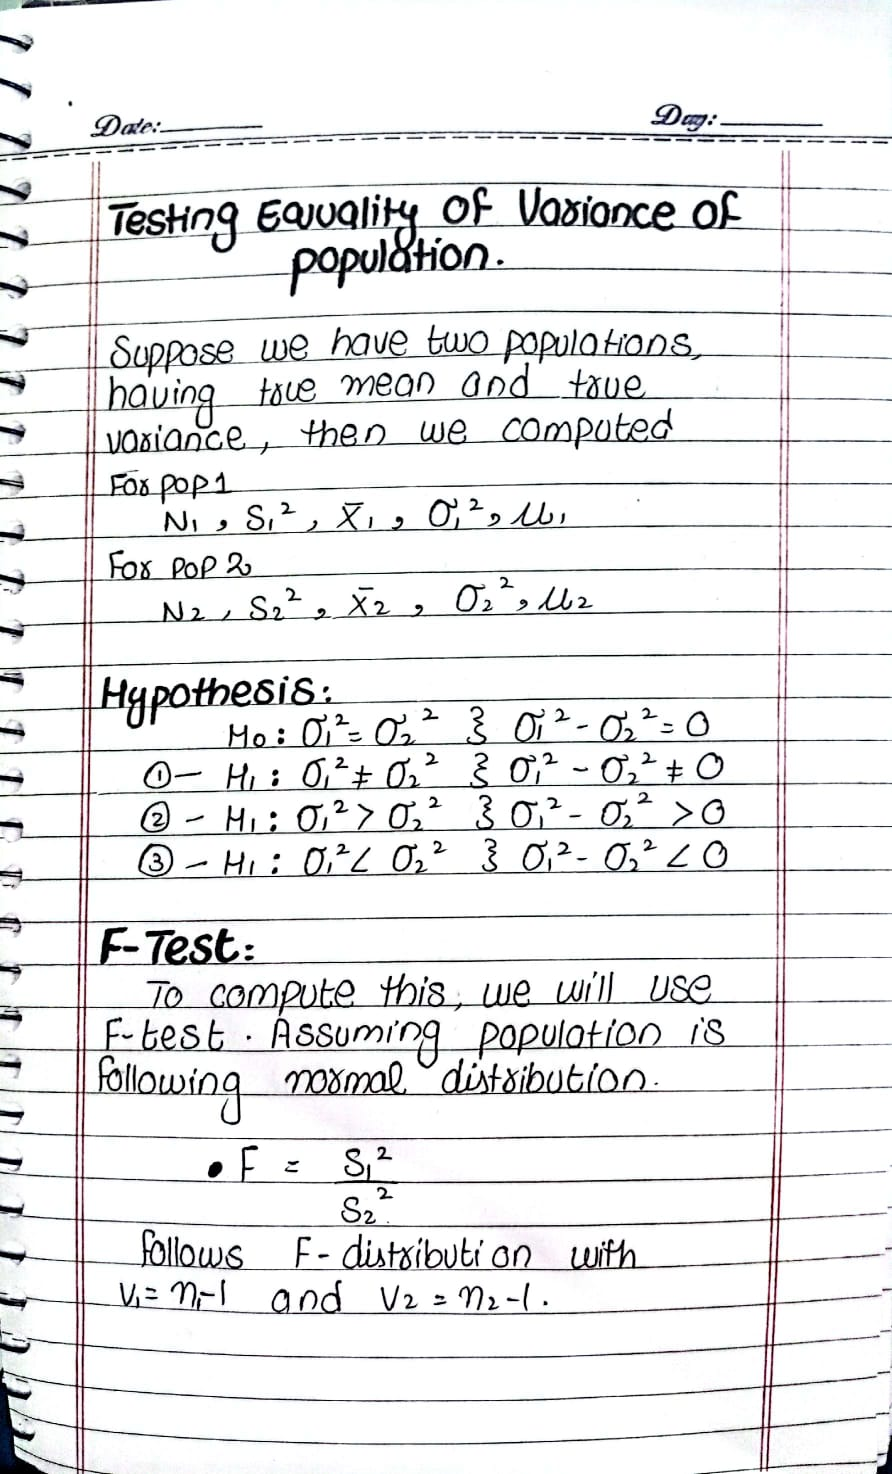 Date:
Day:
Testing Equality of Variance of
population.
Suppose we have two populations,
having true mean and true
variance, then we computed
For pop 1
N₁, S₁², x̄₁, σ₁², μ₁
For pop 2
N₂, S₂², x̄₂, σ₂², μ₂
Hypothesis:
H₀: σ₁² = σ₂² ; σ₁² - σ₂² = 0
① - H₁: σ₁² ≠ σ₂² ; σ₁² - σ₂² ≠ 0
② - H₁: σ₁² > σ₂² ; σ₁² - σ₂² > 0
③ - H₁: σ₁² < σ₂² ; σ₁² - σ₂² < 0
F-Test:
To compute this, we will use
F-test. Assuming population is
following normal distribution.
• F = S₁²
S₂²
follows F-distribution with
V₁ = n₁-1 and V₂ = n₂-1.